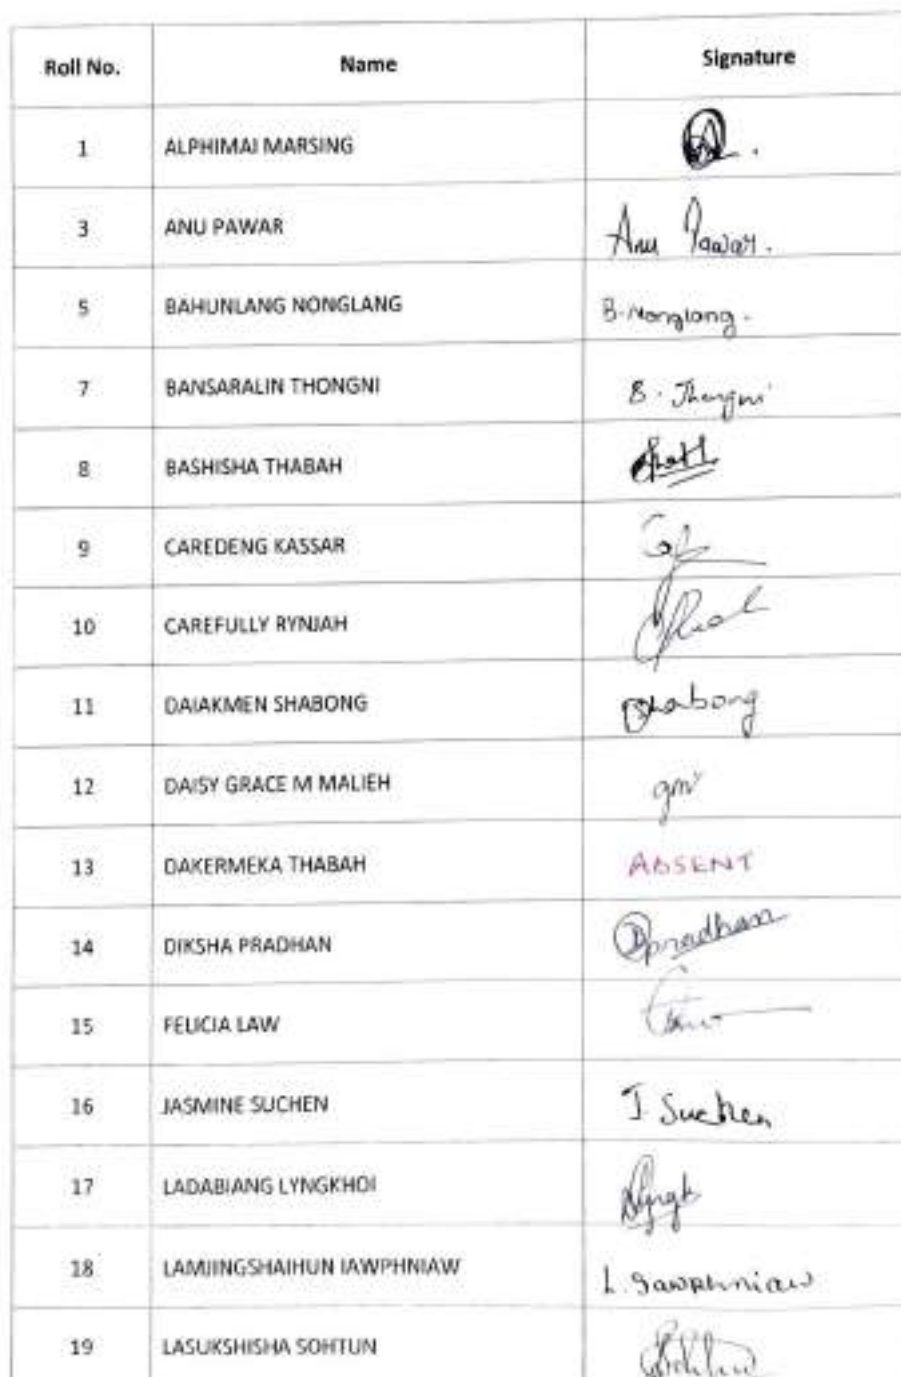 Roll No. Name Signature
1 ALPHIMAI MARSING
3 ANU PAWAR Anu Pawar.
5 BAHUNLANG NONGLANG B. Nonglang.
7 BANSARALIN THONGNI B. Thongni
8 BASHISHA THABAH
9 CAREDENG KASSAR
10 CAREFULLY RYNJAH
11 DAIAKMEN SHABONG Shabong
12 DAISY GRACE M MALIEH gm
13 DAKERMEKA THABAH ABSENT
14 DIKSHA PRADHAN Dpradhan
15 FELICIA LAW
16 JASMINE SUCHEN J Suchen
17 LADABIANG LYNGKHOI Lyngk
18 LAMJINGSHAIHUN IAWPHNIAW L. Iawphniaw
19 LASUKSHISHA SOHTUN